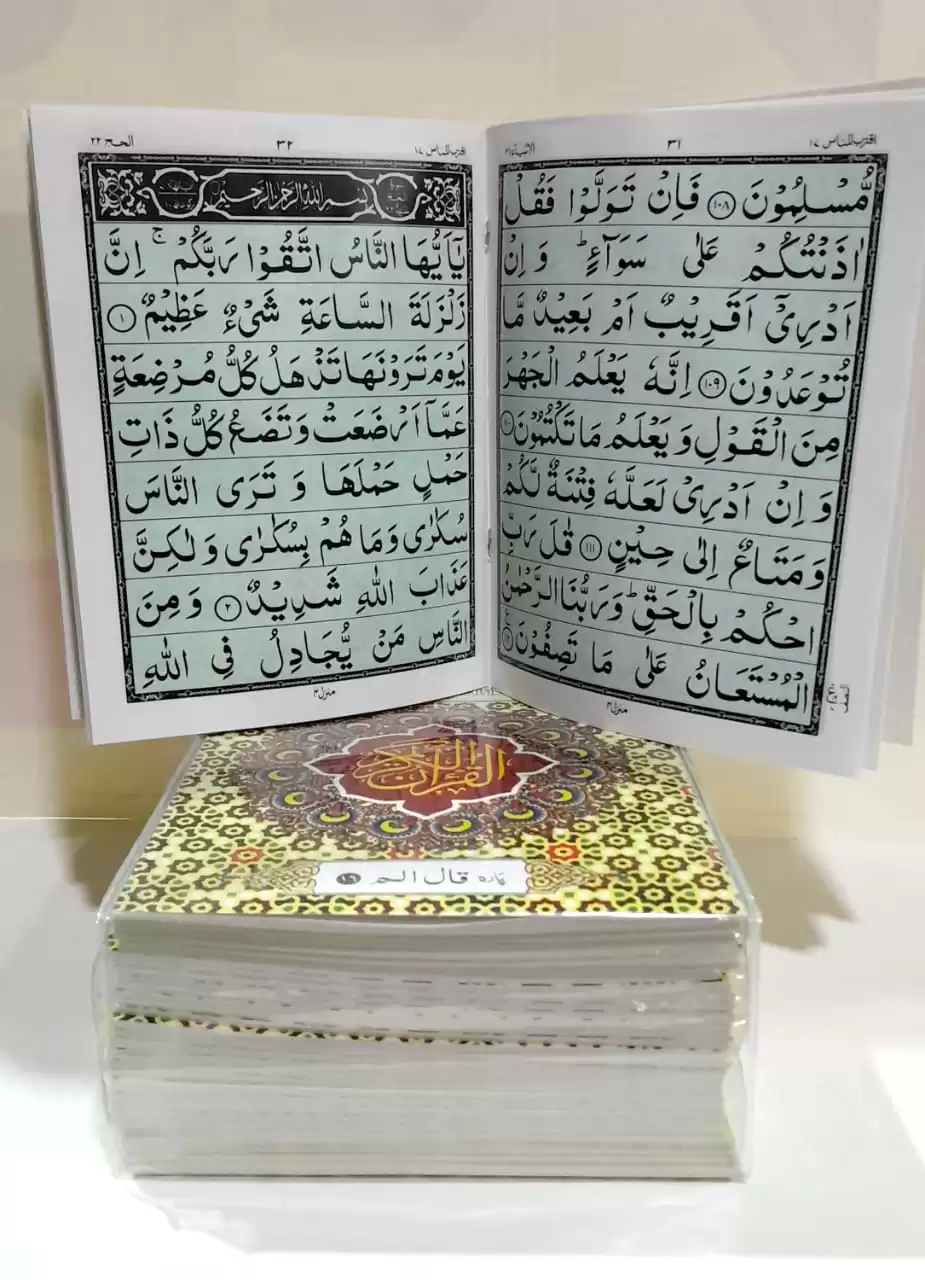 اقترب للناس ١٧
٣١
الانبیاء ٢١
مُّسْلِمُوْنَ ١٠٨ فَاِنْ تَوَلَّوْا فَقُلْ
اٰذَنْتُكُمْ عَلٰى سَوَآءٍ ؕ وَ اِنْ
اَدْرِيْۤ اَقَرِيْبٌ اَمْ بَعِيْدٌ مَّا
تُوْعَدُوْنَ ١٠٩ اِنَّهٗ يَعْلَمُ الْجَهْرَ
مِنَ الْقَوْلِ وَ يَعْلَمُ مَا تَكْتُمُوْنَ
وَ اِنْ اَدْرِيْ لَعَلَّهٗ فِتْنَةٌ لَّكُمْ
وَ مَتَاعٌ اِلٰى حِيْنٍ ١١١ قٰلَ رَبِّ
احْكُمْ بِالْحَقِّ ؕ وَ رَبُّنَا الرَّحْمٰنُ
الْمُسْتَعَانُ عَلٰى مَا تَصِفُوْنَ
منزل ٤
اقترب للناس ١٧
٣٢
الحج ٢٢
بسم الله الرحمن الرحيم
يٰۤاَيُّهَا النَّاسُ اتَّقُوْا رَبَّكُمْ ۚ اِنَّ
زَلْزَلَةَ السَّاعَةِ شَيْءٌ عَظِيْمٌ ١
يَوْمَ تَرَوْنَهَا تَذْهَلُ كُلُّ مُرْضِعَةٍ
عَمَّاۤ اَرْضَعَتْ وَ تَضَعُ كُلُّ ذَاتِ
حَمْلٍ حَمْلَهَا وَ تَرَى النَّاسَ
سُكٰرٰى وَ مَا هُمْ بِسُكٰرٰى وَ لٰكِنَّ
عَذَابَ اللّٰهِ شَدِيْدٌ ٢ وَ مِنَ
النَّاسِ مَنْ يُّجَادِلُ فِي اللّٰهِ
منزل ٤
القرآن الكريم
پارہ قال الم ١٦